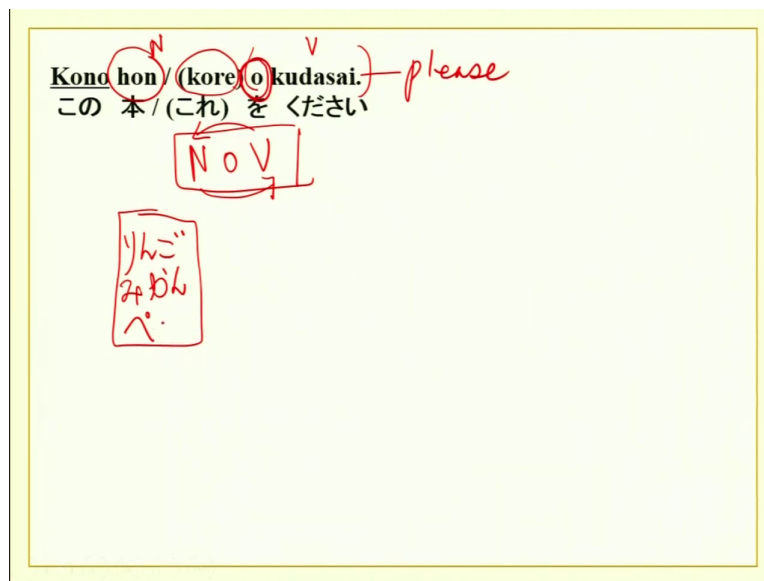 N V
Kono hon / (kore) o kudasai. please
この 本 / (これ) を ください
N O V
りんご
みかん
ペ